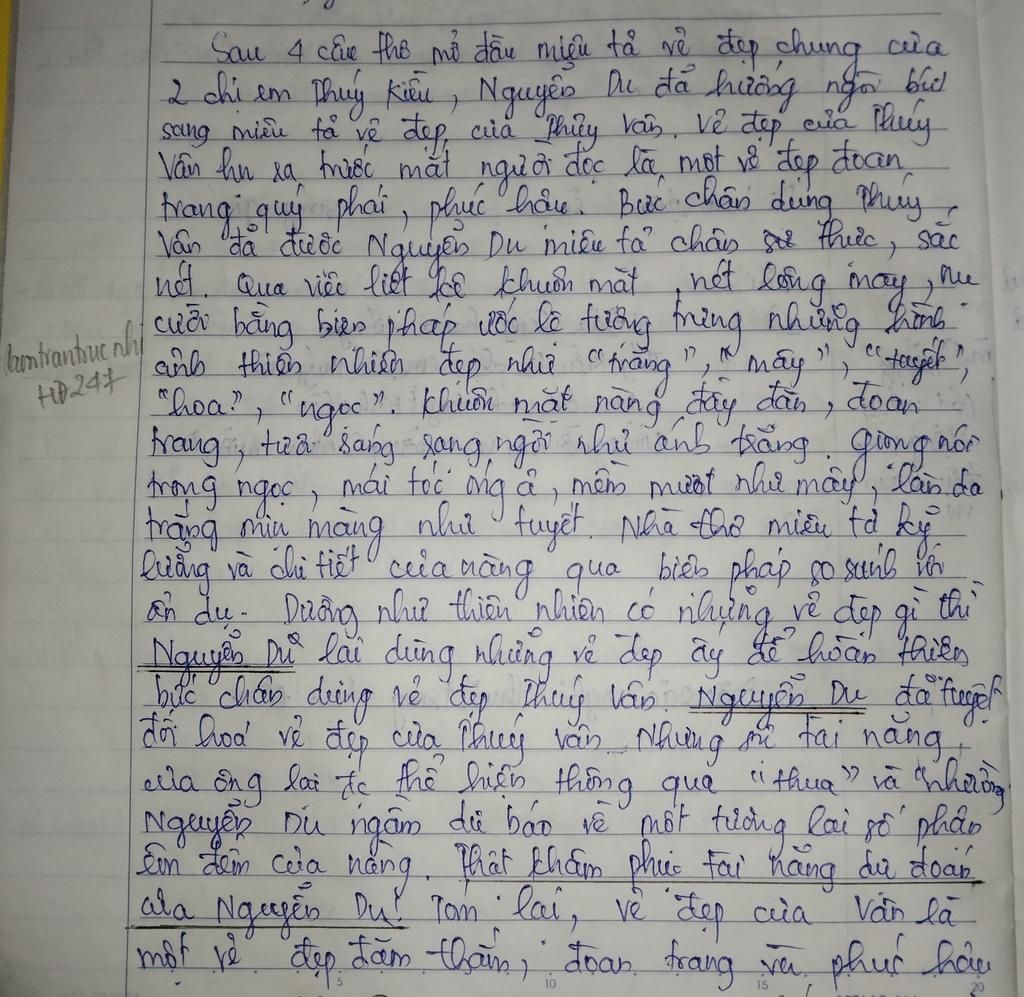 Sau 4 câu thơ mở đầu miêu tả vẻ đẹp chung của
2 chị em Thúy Kiều, Nguyễn Du đã hướng ngòi bút
sang miêu tả vẻ đẹp của Thúy Vân. Vẻ đẹp của Thúy
Vân hiện ra trước mắt người đọc là một vẻ đẹp đoan
trang quý phái, phúc hậu. Bức chân dung Thúy
Vân đã được Nguyễn Du miêu tả chân thực, sắc
nét. Qua việc liệt kê khuôn mặt, nét lông mày, nụ
cười bằng biện pháp ước lệ tượng trưng những hình
ảnh thiên nhiên đẹp như "trăng", "mây", "tuyết",
"hoa", "ngọc". Khuôn mặt nàng đầy đặn, đoan
trang, tươi sáng sang ngời như ánh trăng. Giọng nói
trong ngọc, mái tóc óng ả, mềm mượt như mây, làn da
trắng mịn màng như tuyết. Nhà thơ miêu tả kỹ
lưỡng và chi tiết của nàng qua biện pháp so sánh với
ẩn dụ. Dường như thiên nhiên có những vẻ đẹp gì thì
Nguyễn Du lại dùng những vẻ đẹp ấy để hoàn thiện
bức chân dung vẻ đẹp Thúy Vân. Nguyễn Du đã tuyệt
đối hoá vẻ đẹp của Thúy Vân. Nhưng sự tài năng
của ông lại đc thể hiện thông qua "thua" và "nhường"
Nguyễn Du ngầm dự báo về một tương lai số phận
êm đềm của nàng. Thật khâm phục tài năng dự đoán
của Nguyễn Du! Tóm lại, vẻ đẹp của Vân là
một vẻ đẹp đằm thắm, đoan trang và phúc hậu
lamtrantrucnhi
HĐ247
5 10 15 20